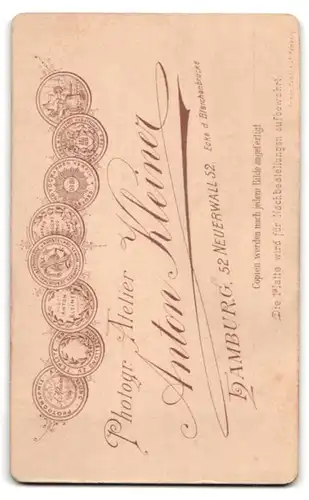 Photogr. Atelier
Anton Kleiner
HAMBURG, 52 NEUERWALL 52.
Ecke d. Bleichenbrücke
Copien werden nach jedem Bilde angefertigt
Die Platte wird für Nachbestellungen aufbewahrt.